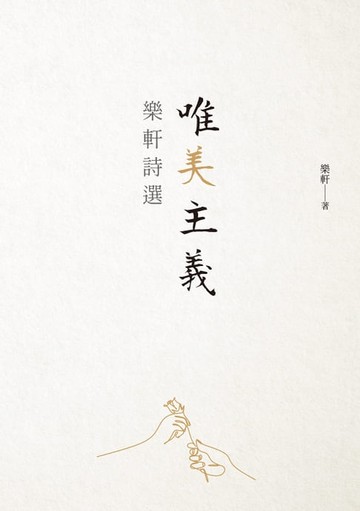 唯美主義
樂軒詩選
樂軒—著